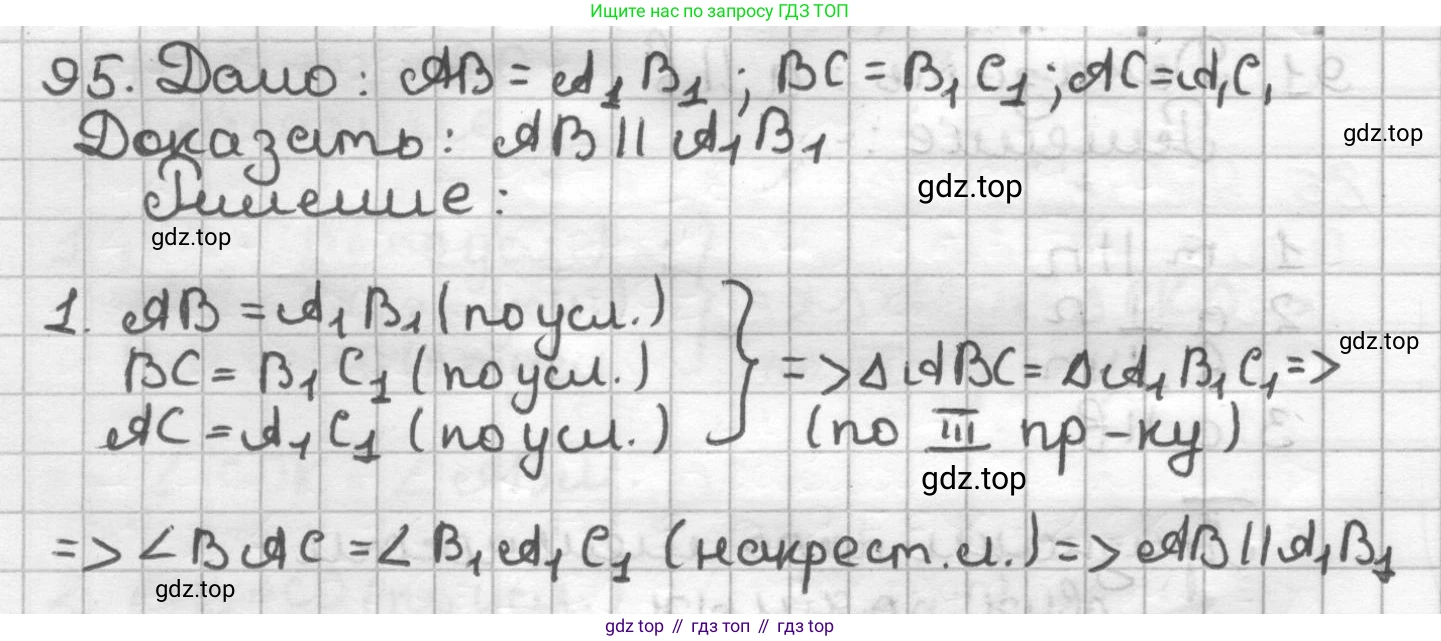 Ищите нас по запросу ГДЗ ТОП
95. Дано: AB = A₁B₁; BC = B₁C₁; AC = A₁C₁
Доказать: AB || A₁B₁
gdz.top
Решение:
gdz.top
gdz.top
1. AB = A₁B₁ (по усл.)
BC = B₁C₁ (по усл.) } => ΔABC = ΔA₁B₁C₁ =>
gdz.top
AC = A₁C₁ (по усл.) (по III пр-ку)
gdz.top
=> ∠BAC = ∠B₁A₁C₁ (накрест. л.) => AB || A₁B₁
gdz.top
gdz top // гдз топ // гдз top